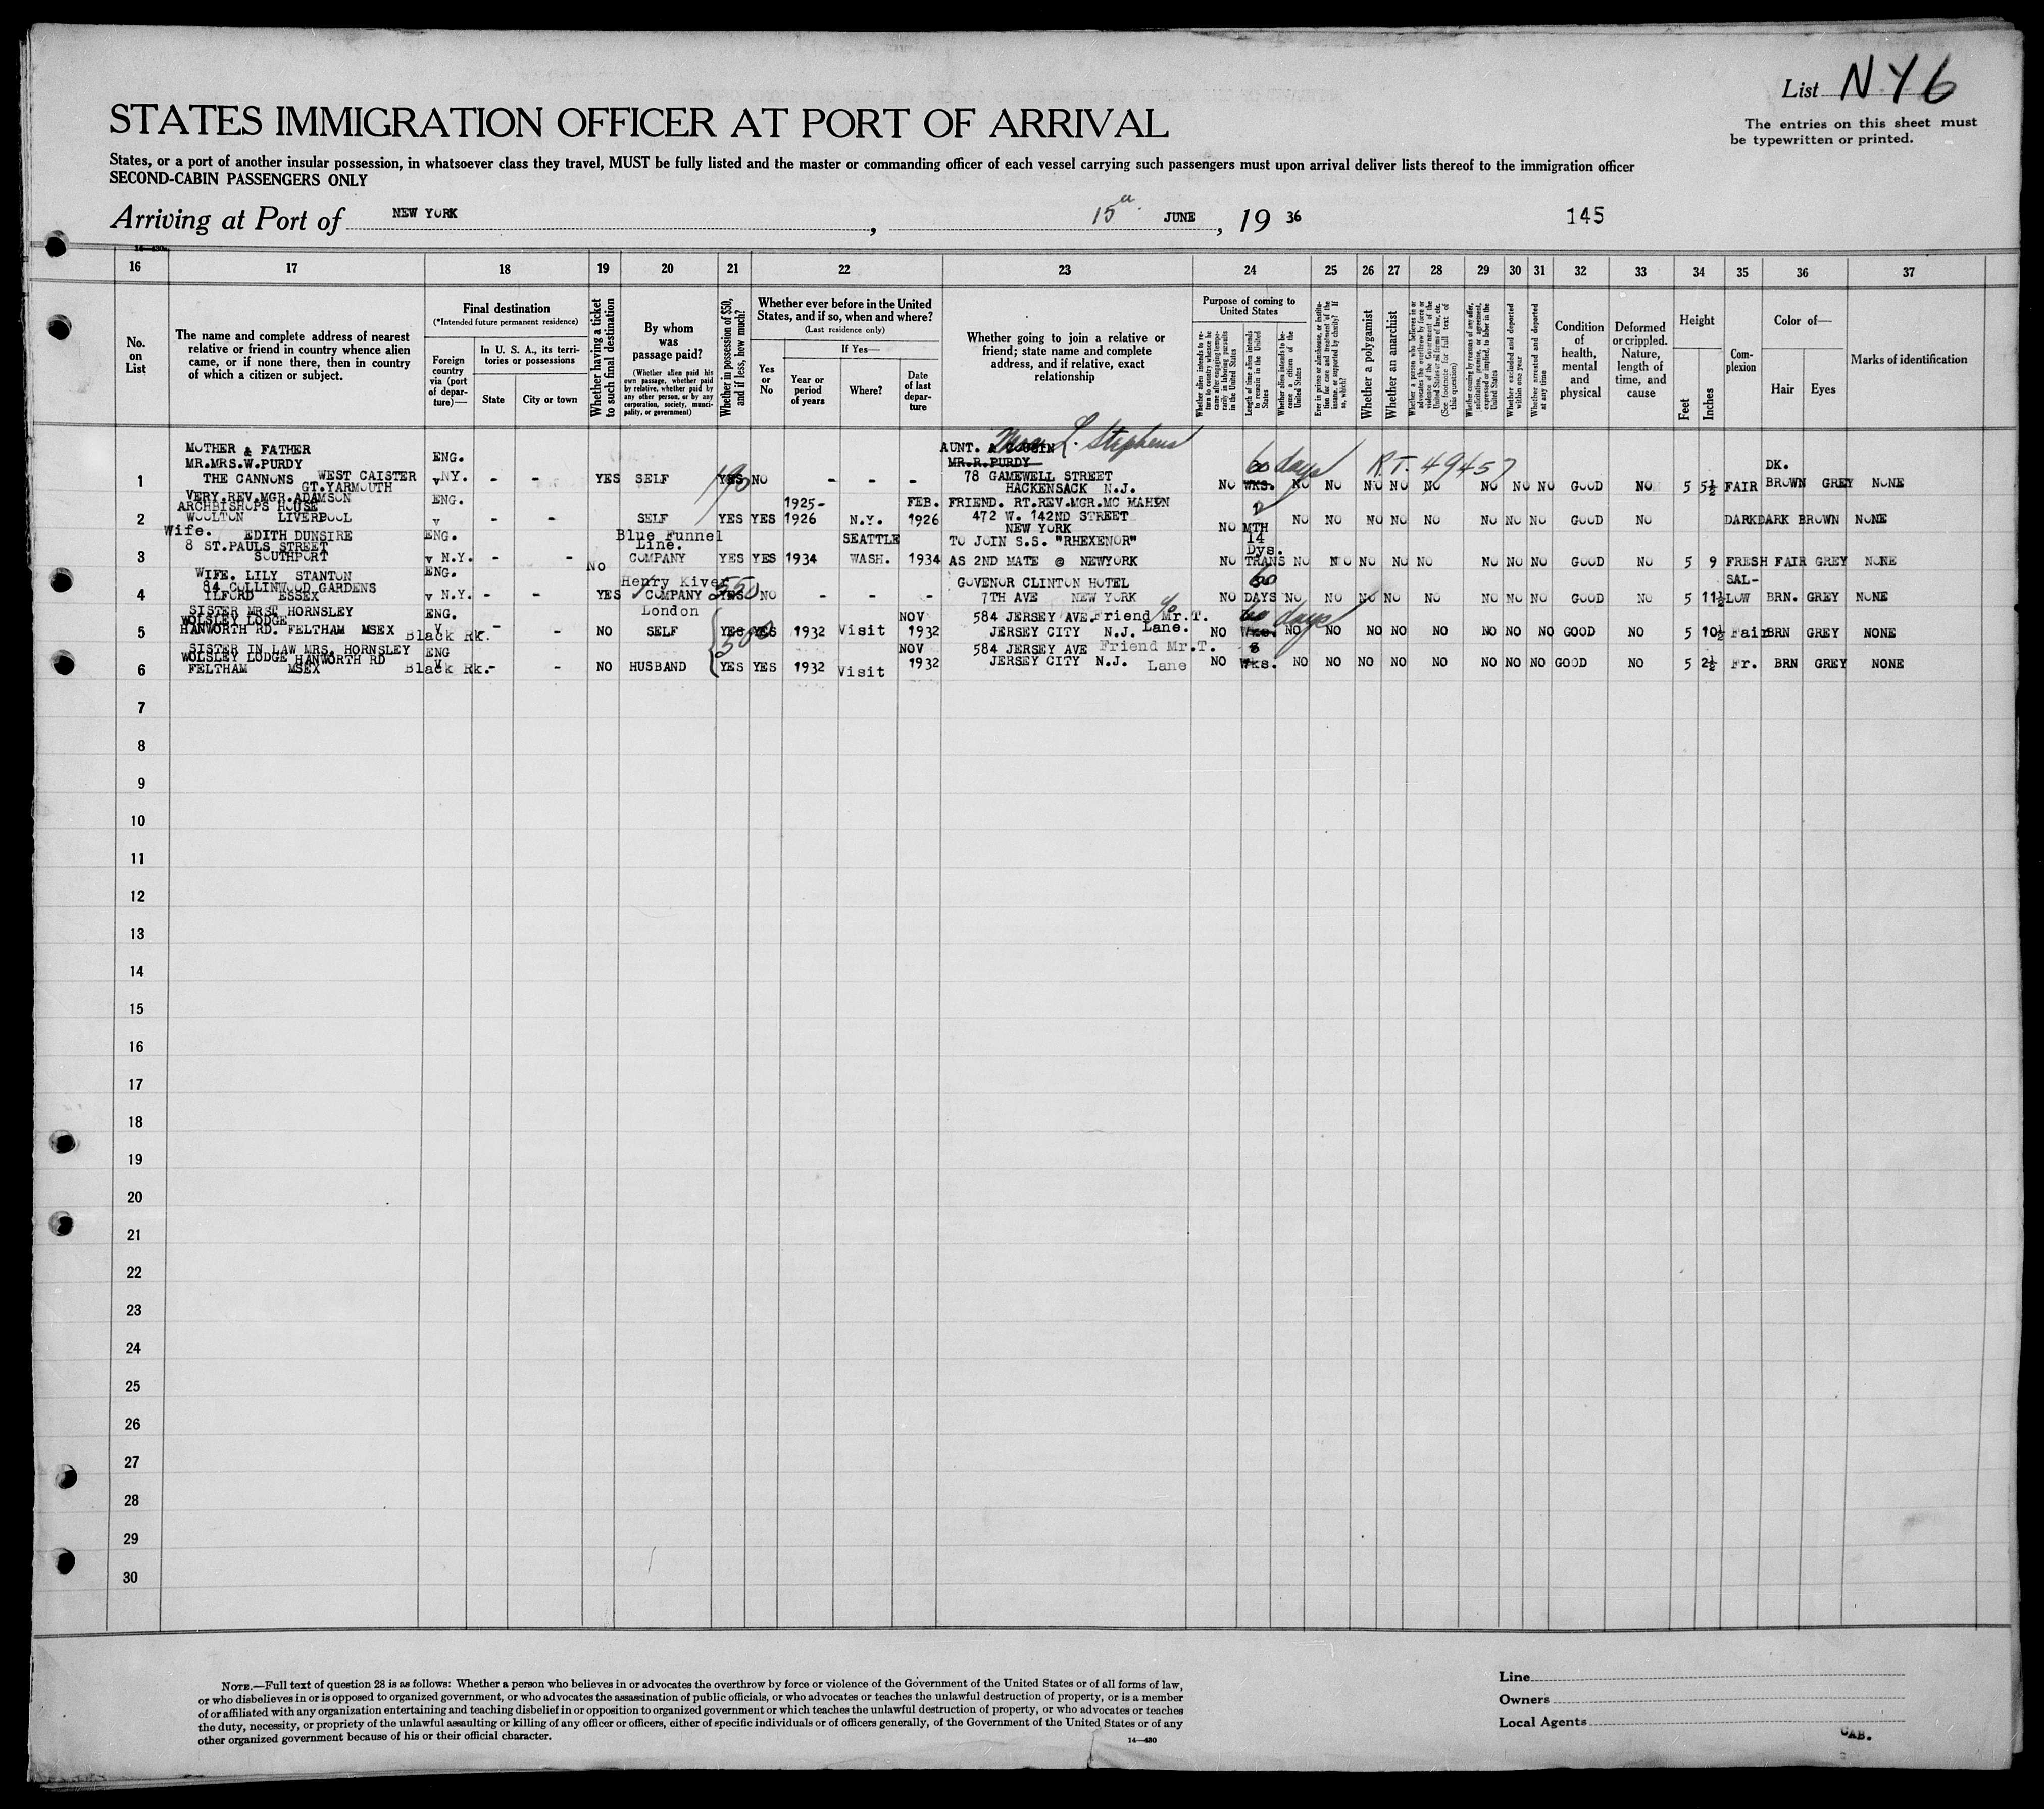 List NY6
The entries on this sheet must
be typewritten or printed.
STATES IMMIGRATION OFFICER AT PORT OF ARRIVAL
States, or a port of another insular possession, in whatsoever class they travel, MUST be fully listed and the master or commanding officer of each vessel carrying such passengers must upon arrival deliver lists thereof to the immigration officer
SECOND-CABIN PASSENGERS ONLY
Arriving at Port of NEW YORK, 15 JUNE, 19 36 145
16 17 18 19 20 21 22 23 24 25 26 27 28 29 30 31 32 33 34 35 36 37
No.
on
List
The name and complete address of nearest
relative or friend in country whence alien
came, or if none there, then in country
of which a citizen or subject.
Final destination
(*Intended future permanent residence)
Foreign
country
via (port
of depar-
ture)—
In U. S. A., its terri-
tories or possessions
State City or town
Whether having a ticket
to such final destination
By whom
was
passage paid?
(Whether alien paid his
own passage, whether paid
by relative, whether paid by
any other person, or by any
corporation, society, munici-
pality, or government)
Whether in possession of $50,
and if less, how much?
Whether ever before in the United
States, and if so, when and where?
(Last residence only)
Yes
or
No
If Yes—
Year or
period
of years
Where?
Date
of last
depar-
ture
Whether going to join a relative or
friend; state name and complete
address, and if relative, exact
relationship
Purpose of coming to
United States
Whether alien intends to re-
turn to country whence he
came after engaging tempo-
rarily in laboring pursuits
in the United States
Length of time alien intends
to remain in the United
States
Whether alien intends to be-
come a citizen of the
United States
Ever in prison or almshouse, or institu-
tion for care and treatment of the
insane, or supported by charity? If
so, which?
Whether a polygamist
Whether an anarchist
Whether a person who believes in or
advocates the overthrow by force or
violence of the Government of the
United States or all forms of law, etc.
(See footnote for full text of
this question)
Whether coming by reasons of any offer,
solicitation, promise, or agreement,
expressed or implied, to labor in the
United States
Whether excluded and deported
within one year
Whether arrested and deported
at any time
Condition
of
health,
mental
and
physical
Deformed
or crippled.
Nature,
length of
time, and
cause
Height
Feet Inches
Com-
plexion
Color of—
Hair Eyes
Marks of identification
MOTHER & FATHER
MR.MRS.W.PURDY ENG. AUNT. & COUSIN L. Stephens
MR.R.PURDY 60 days R.T. 49457 DK.
1 THE CANNONS WEST CAISTER v NY. - - YES SELF 190 YES NO - - - 78 GAMEWELL STREET
GT.YARMOUTH HACKENSACK N.J. NO WKS. NO NO NO NO NO NO NO NO GOOD NO 5 5½ FAIR BROWN GREY NONE
VERY.REV.MGR.ADAMSON ENG. 1925- FEB. FRIEND. RT.REV.MGR.MC MAHON
ARCHBISHOPS HOUSE
2 WOOLTON LIVERPOOL v - - SELF YES YES 1926 N.Y. 1926 472 W. 142ND STREET
NEW YORK NO 2 MTH NO NO NO NO NO NO NO NO GOOD NO DARK DARK BROWN NONE
Wife. EDITH DUNSIRE ENG. Blue Funnel
Line. SEATTLE TO JOIN S.S. "RHEXENOR" 14
Dys.
8 ST.PAULS STREET
3 SOUTHPORT v N.Y. - - No COMPANY YES YES 1934 WASH. 1934 AS 2ND MATE @ NEWYORK NO TRANS NO NO NO NO NO NO NO NO GOOD NO 5 9 FRESH FAIR GREY NONE
WIFE. LILY STANTON ENG. Henry Kiver 550 GOVENOR CLINTON HOTEL 60 SAL-
84 COLLINWOOD GARDENS
4 ILFORD ESSEX v N.Y. - - YES COMPANY YES NO - - - 7TH AVE NEW YORK NO DAYS NO NO NO NO NO NO NO NO GOOD NO 5 11½ LOW BRN. GREY NONE
SISTER MRST HORNSLEY ENG. London NOV 584 JERSEY AVE. Friend Mr.T. c/o 60 days
WOLSLEY LODGE
5 HANWORTH RD. FELTHAM MSEX v Black Rk. - - NO SELF 500 YES YES 1932 Visit 1932 JERSEY CITY N.J. Lane. NO Wks. NO NO NO NO NO NO NO NO GOOD NO 5 10½ Fair BRN GREY NONE
SISTER IN LAW MRS. HORNSLEY ENG NOV 584 JERSEY AVE Friend Mr.T. 8
WOLSLEY LODGE HANWORTH RD
6 FELTHAM MSEX v Black Rk. - - NO HUSBAND YES YES 1932 Visit 1932 JERSEY CITY N.J. Lane NO Wks. NO NO NO NO NO NO NO NO GOOD NO 5 2½ Fr. BRN GREY NONE
7
8
9
10
11
12
13
14
15
16
17
18
19
20
21
22
23
24
25
26
27
28
29
30
NOTE.—Full text of question 28 is as follows: Whether a person who believes in or advocates the overthrow by force or violence of the Government of the United States or of all forms of law,
or who disbelieves in or is opposed to organized government, or who advocates the assassination of public officials, or who advocates or teaches the unlawful destruction of property, or is a member
of or affiliated with any organization entertaining and teaching disbelief in or opposition to organized government or which teaches the unlawful destruction of property, or who advocates or teaches
the duty, necessity, or propriety of the unlawful assaulting or killing of any officer or officers, either of specific individuals or of officers generally, of the Government of the United States or of any
other organized government because of his or their official character.
14—430
Line
Owners
Local Agents
CAB.